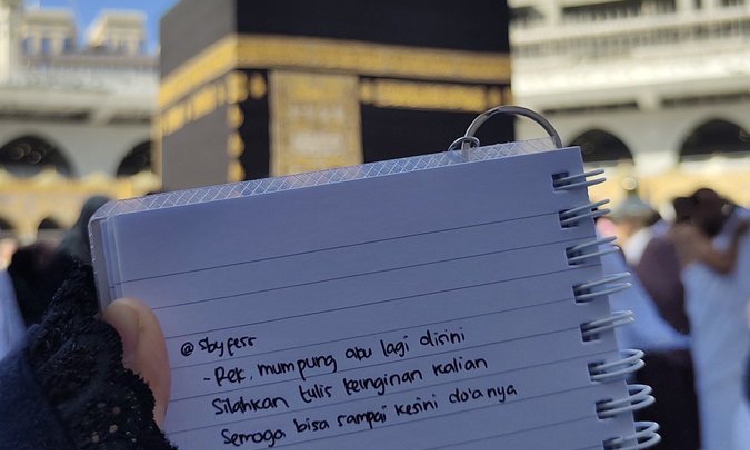 @sbyfess
- Rek, mumpung aku lagi disini
Silahkan tulis keinginan kalian
Semoga bisa sampai kesini do'a nya